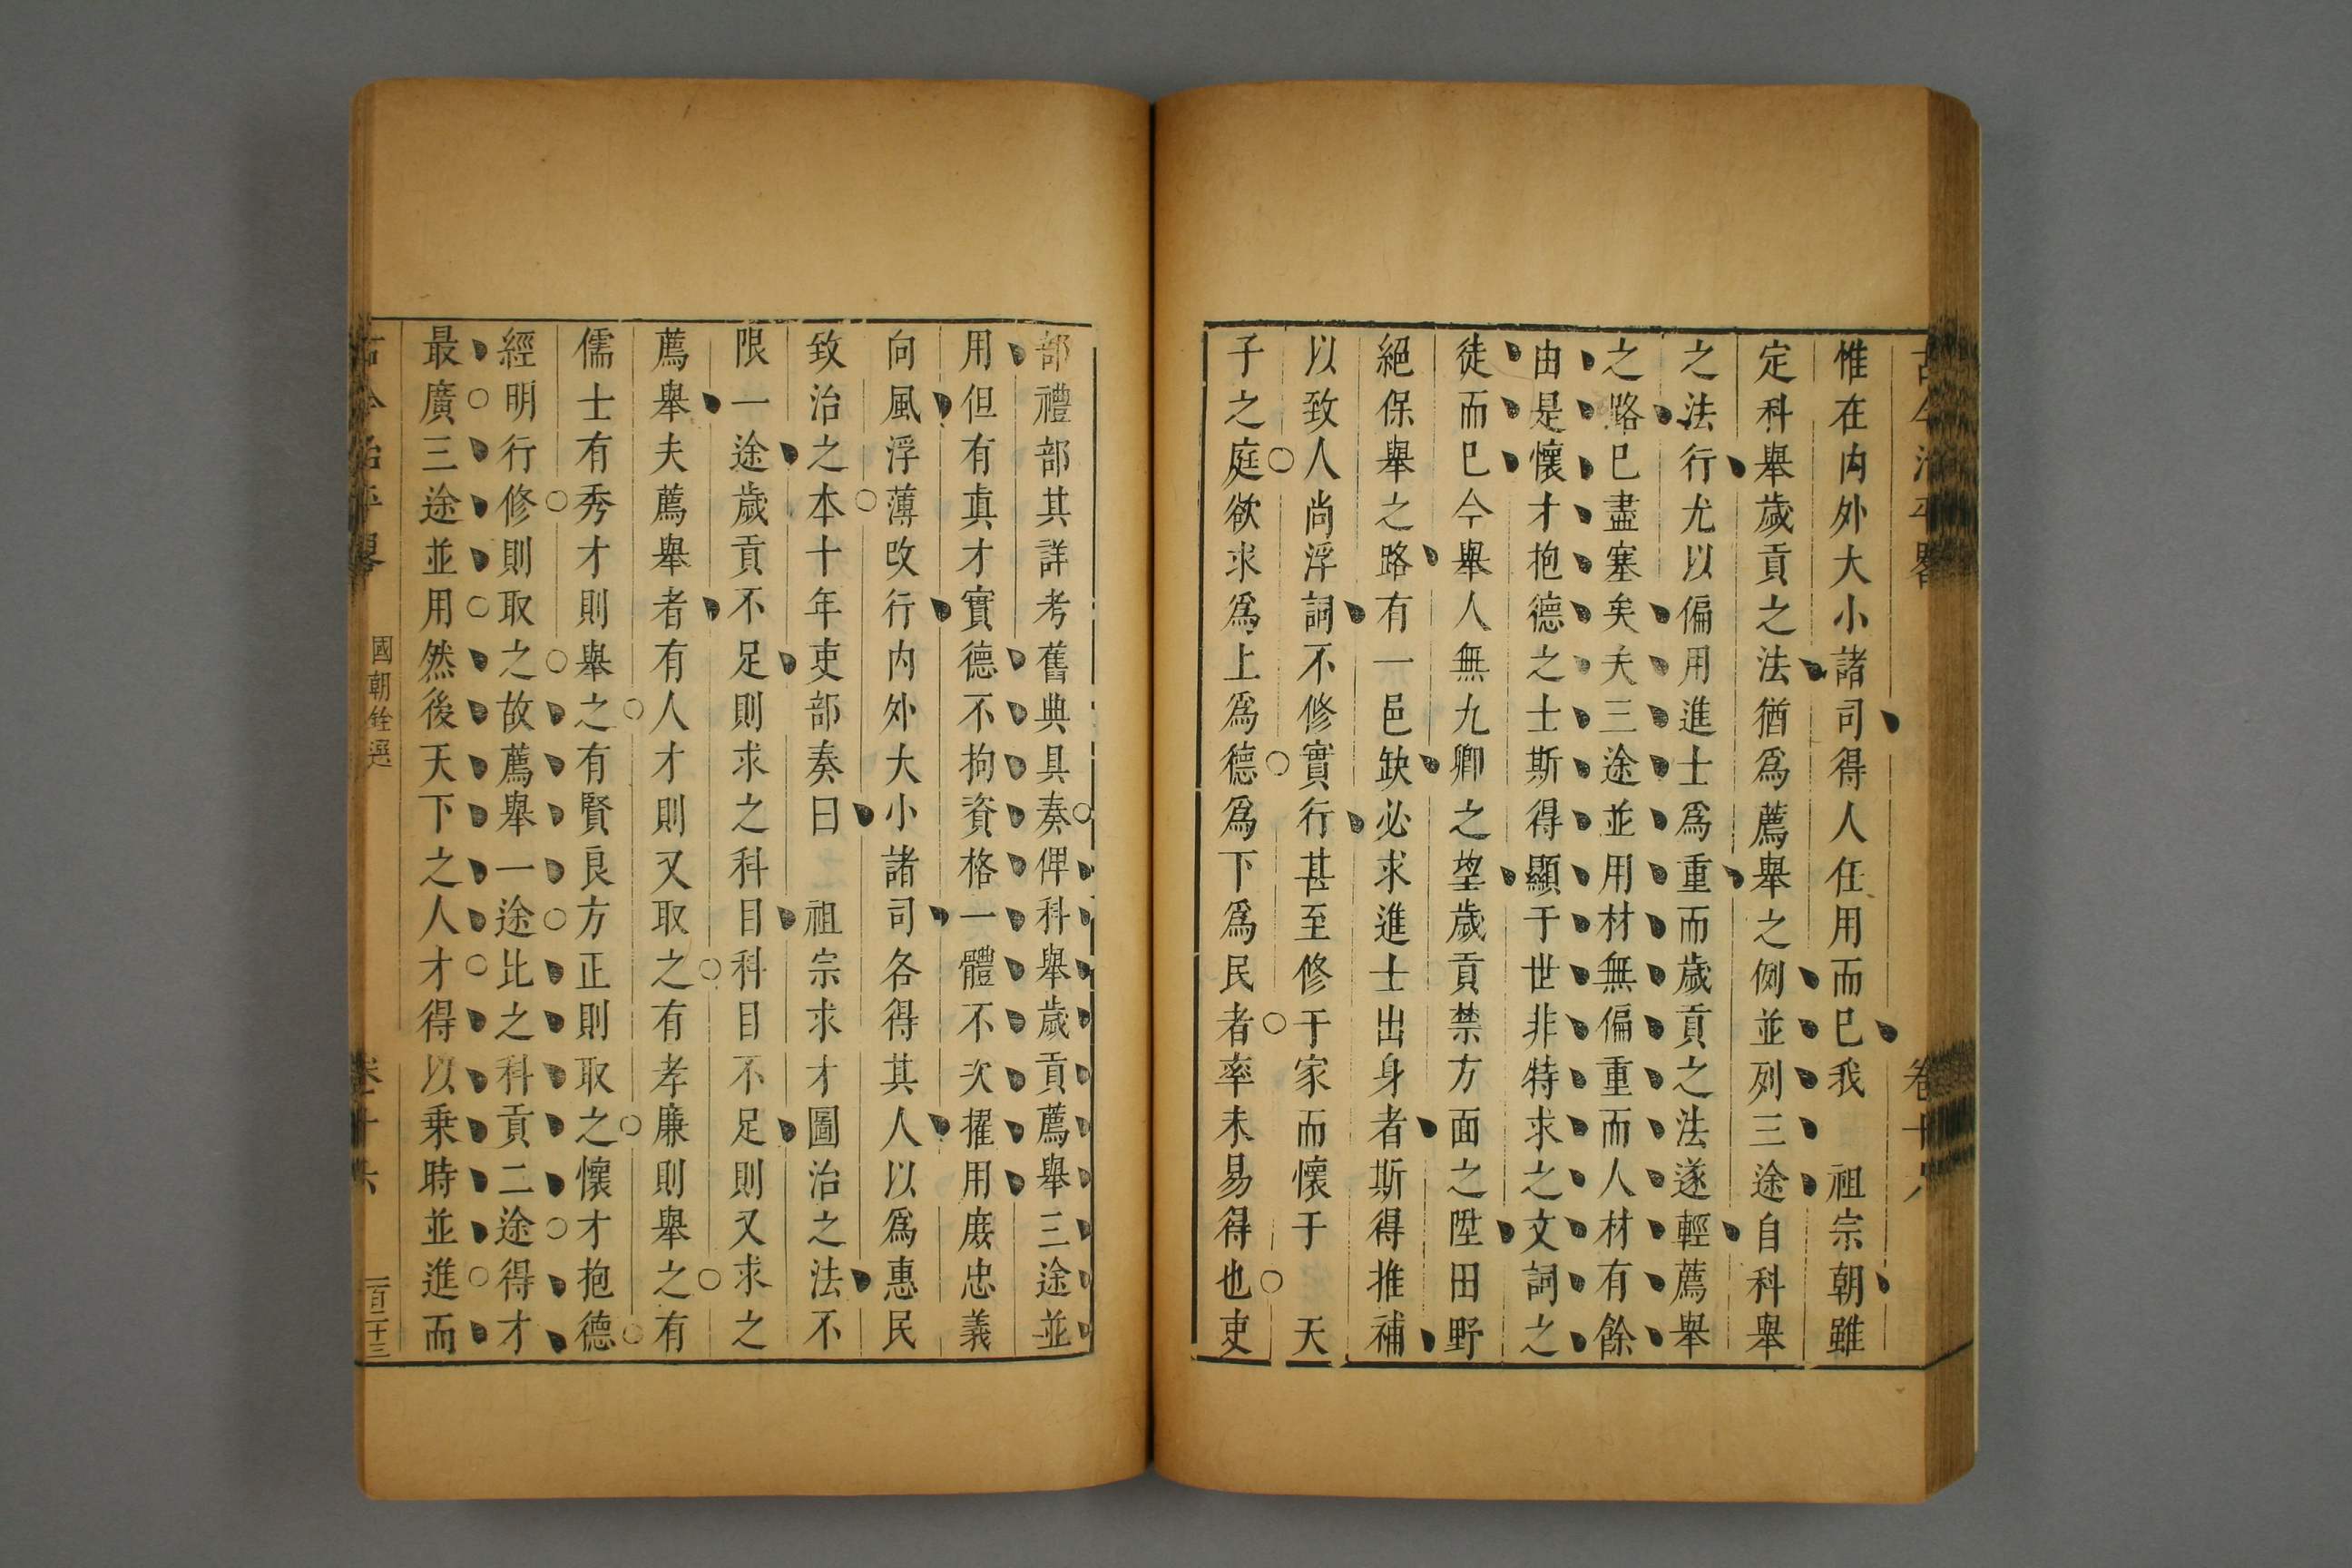 古今治平畧
卷十八
惟在内外大小諸司得人任用而已我 祖宗朝雖
定科舉歲貢之法猶爲薦舉之例並列三途自科舉
之法行尤以偏用進士爲重而歲貢之法遂輕薦舉
之路已盡塞矣夫三途並用材無偏重而人材有餘
由是懷才抱德之士斯得顯于世非特求之文詞之
徒而已今舉人無九卿之望歲貢禁方面之陞田野
絕保舉之路有一邑缺必求進士出身者斯得推補
以致人尚浮詞不修實行甚至修于家而懷于 天
子之庭欲求爲上爲德爲下爲民者率未易得也吏
部禮部其詳考舊典具奏俾科舉歲貢薦舉三途並
用但有真才實德不拘資格一體不次擢用庻忠義
向風浮薄改行内外大小諸司各得其人以爲惠民
致治之本十年吏部奏曰 祖宗求才圖治之法不
限一途歲貢不足則求之科目科目不足則又求之
薦舉夫薦舉者有人才則又取之有孝廉則舉之有
儒士有秀才則舉之有賢良方正則取之懷才抱德
經明行修則取之故薦舉一途比之科貢二途得才
最廣三途並用然後天下之人才得以乗時並進而
古今治平畧
國朝銓選
卷十六
一百二十三